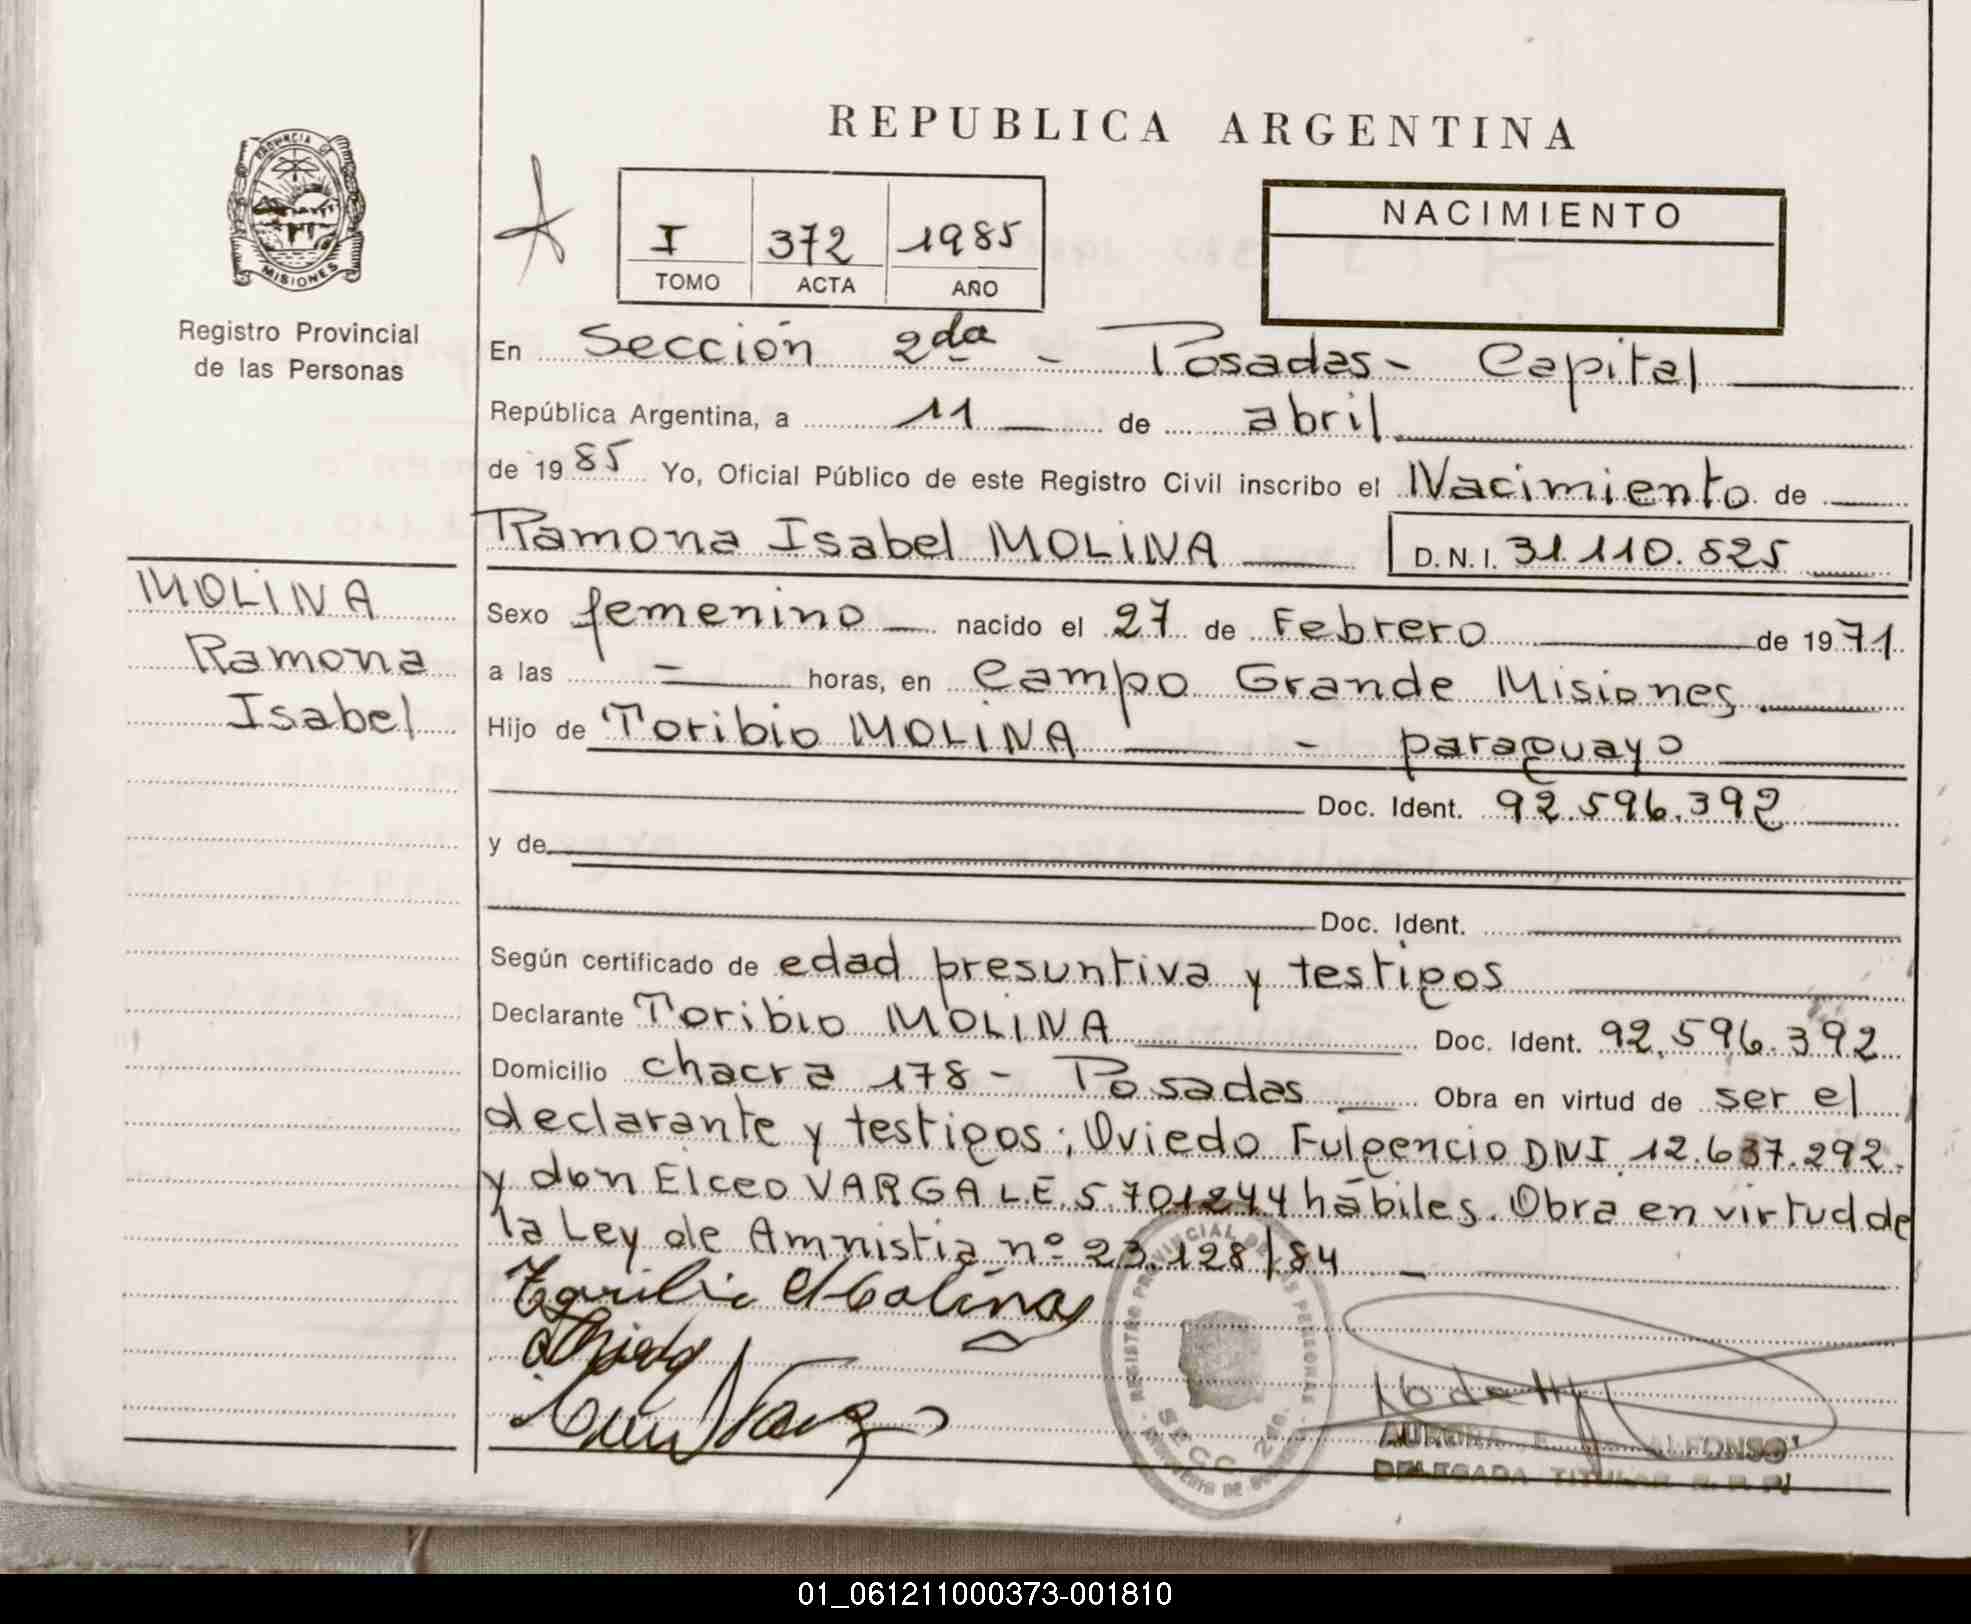 REPUBLICA ARGENTINA
PROVINCIA DE
MISIONES
Registro Provincial
de las Personas
I 372 1985
TOMO ACTA AÑO
NACIMIENTO
En Sección 2da - Posadas - Capital
República Argentina, a 11 de abril
de 1985 Yo, Oficial Público de este Registro Civil inscribo el Nacimiento de
Ramona Isabel MOLINA D.N.I. 31.110.525
MOLINA
Ramona
Isabel
Sexo femenino nacido el 27 de Febrero de 1971
a las = horas, en Campo Grande Misiones
Hijo de Toribio MOLINA - paraguayo
Doc. Ident. 92.596.392
y de
Doc. Ident.
Según certificado de edad presuntiva y testigos
Declarante Toribio MOLINA Doc. Ident. 92.596.392
Domicilio chacra 178 - Posadas Obra en virtud de ser el
declarante y testigos; Oviedo Fulgencio DNI 12.637.292
y don Elceo VARGA L.E. 5.701244 hábiles. Obra en virtud de
la Ley de Amnistia nº 23.128/84
Toribio Molina
Oviedo
REGISTRO PROVINCIAL DE LAS PERSONAS
SECC. 2da.
AURORA ALFONSO
DELEGADA TITULAR R. P. P.
01_061211000373-001810